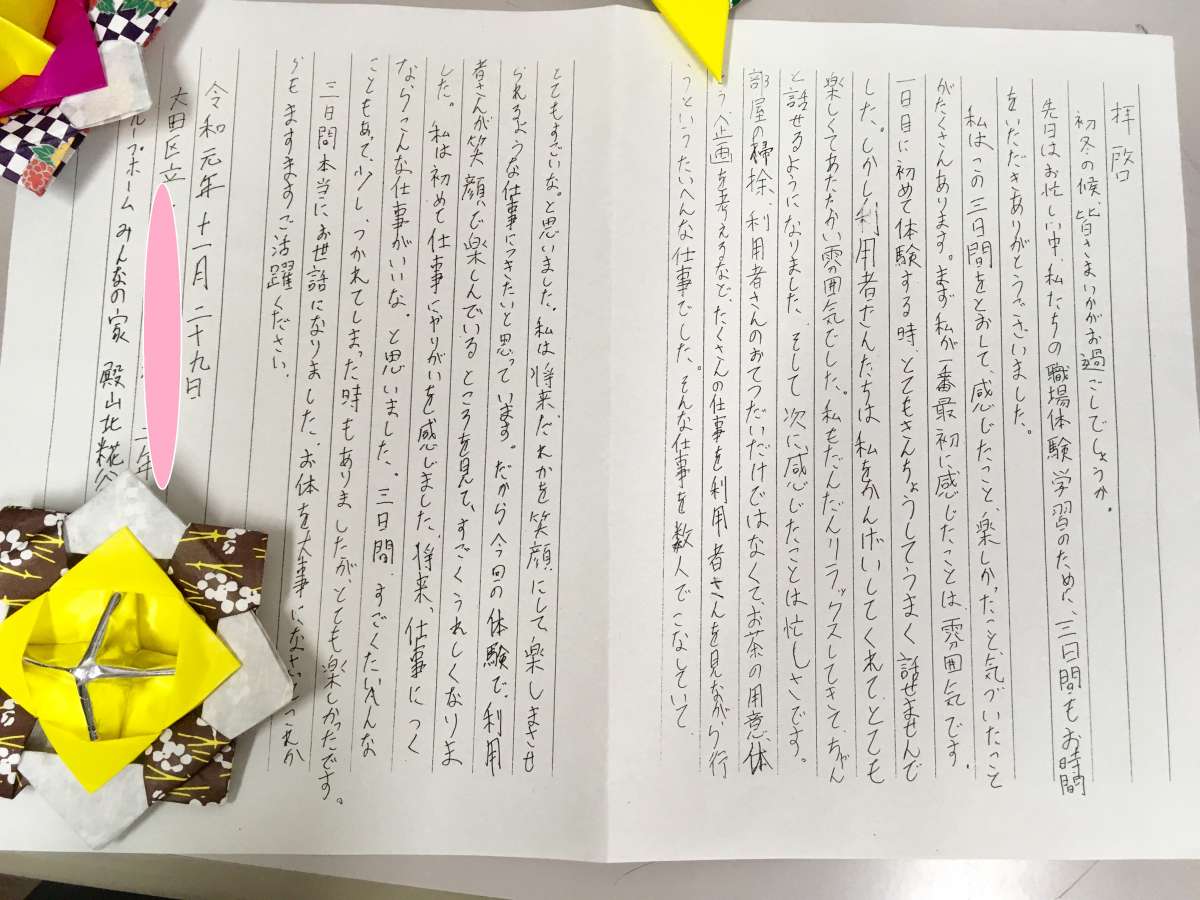 拝啓
初冬の候、皆さまいかがお過ごしでしょうか。
先日はお忙しい中、私たちの職場体験学習のために、三日間もお時間
をいただきありがとうございました。
私はこの三日間をとおして、感じたこと、楽しかったこと、気づいたこと
がたくさんあります。まず私が一番最初に感じたことは、雰囲気です。
一日目に初めて体験する時、とてもきんちょうしてうまく話せませんで
した。しかし、利用者さんたちは私をかんげいしてくれて、とても
楽しくてあたたかい雰囲気でした。私もだんだんリラックスしてきて、ちゃん
と話せるようになりました。そして次に感じたことは忙しさです。
部屋の掃除、利用者さんのおてつだいだけではなくて、お茶の用意、体
う企画を考えるなど、たくさんの仕事を利用者さんを見ながら行
うというたいへんな仕事でした。そんな仕事を数人でこなしていて、
とてもすごいな。と思いました。私は将来、だれかを笑顔にして、楽しませ
られるような仕事につきたいと思っています。だから今回の体験で、利用
者さんが笑顔で楽しんでいるところを見て、すごくうれしくなりま
した。私は初めて仕事にやりがいを感じました。将来、仕事につく
ならこんな仕事がいいな。と思いました。三日間、すごくたいへんな
こともあって、少し、つかれてしまった時もありましたが、とても楽しかったです。
三日間本当にお世話になりました。お体を大事になさってこれか
らもますますご活躍ください。
令和元年十一月二十九日
大田区立
二年
ループホームみんなの家 殿山北糀谷